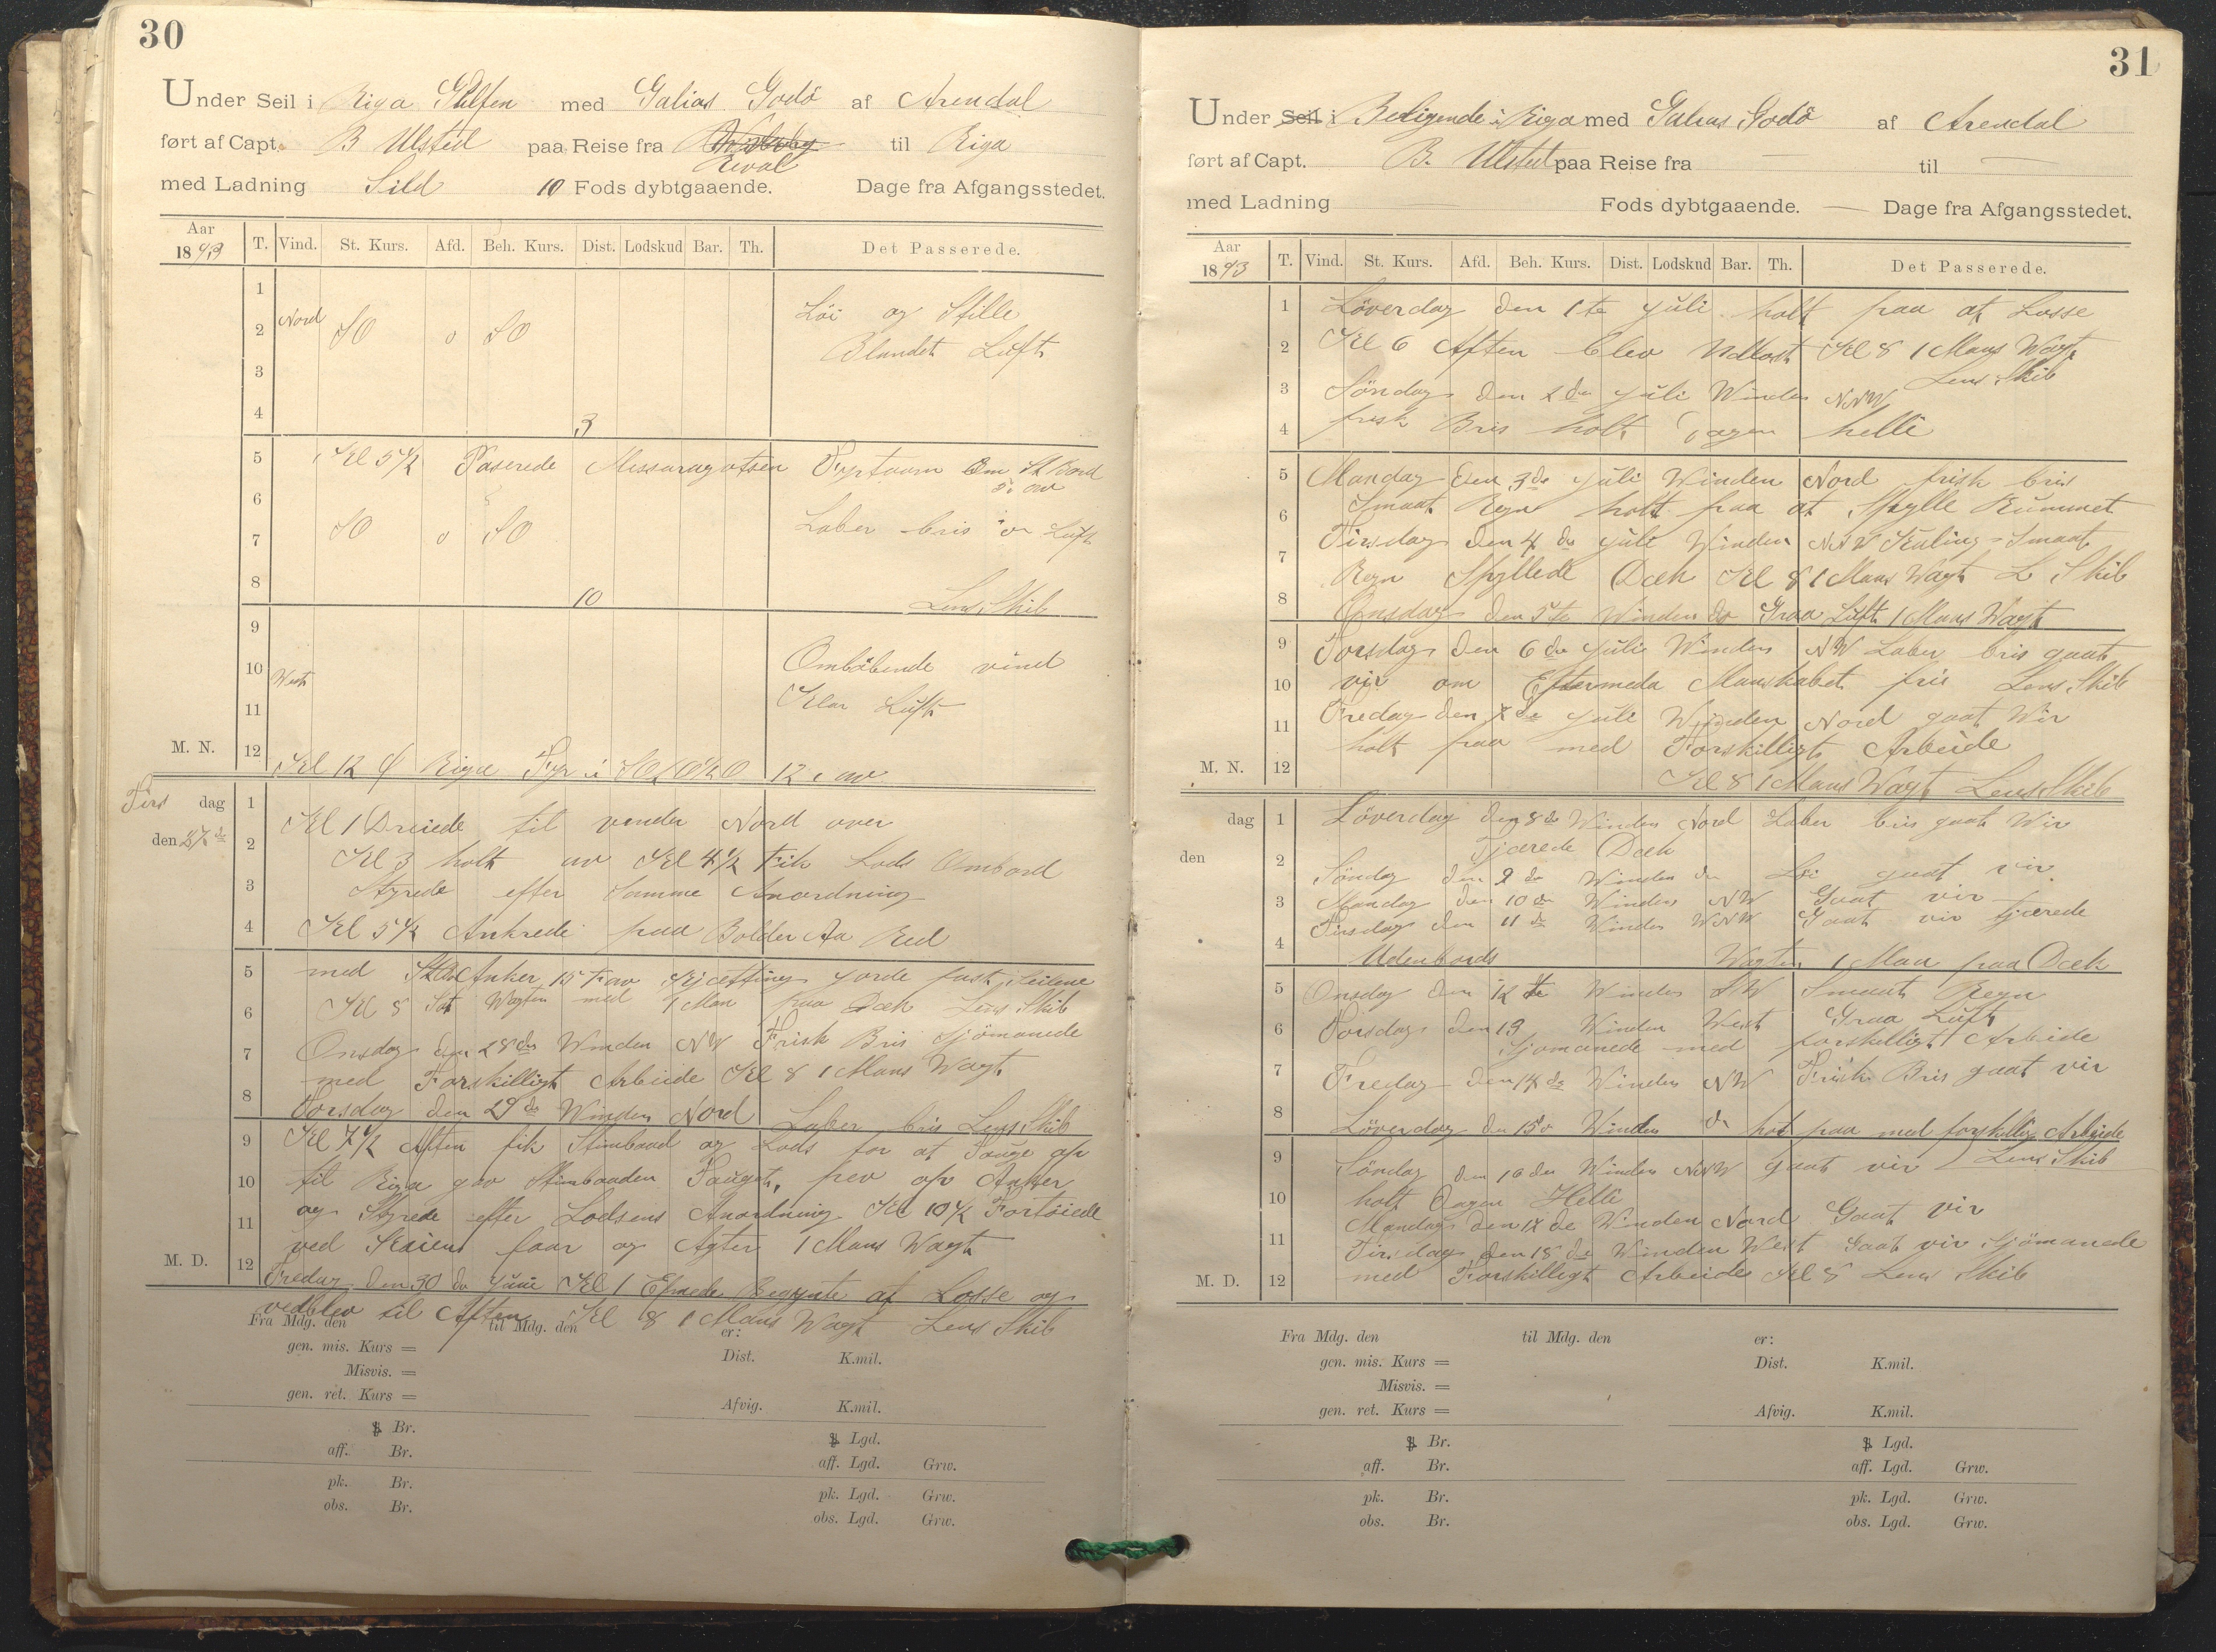 30
Under Seil i Riga Gulfen med Galias Godö af Arendal
ført af Capt. B Ulsted paa Reise fra til Riga
Reval
med Ladning Sild 10 Fods dybtgaaende. Dage fra Afgangsstedet.
Aar 1893 T. Vind. St. Kurs. Afd. Beh. Kurs. Dist. Lodskud Bar. Th. Det Passerede.
1
Löi og Stille
2 Nord SO o SO
Blandet Luft
3
4 3
5 Kl 5½ Paserede Messaragotsen Fyrtaarn Om St Bord
6
7 SO o SO Laber bris Luft
8 10 Lens Skib
9
10 West Omlöbende vind
11 Klar Luft
M. N. 12 Kl 12 Riga Fyr i
Tirs dag 1 Kl 1 Dreiede til vinder Nord over
den 27de 2 Kl 3 holt av Kl 4½ Fik Lods Ombord
3 Styrede efter Samme Anordning
4 Kl 5½ Ankrede paa Bolder Aa Red
5 med Anker 15 Fav Kjætting gorde fast Seilene
6 Kl 8 Sat Wagten med 1 Man paa Dæk Lens Skib
7 Onsdag den 28de Winden NW Frisk Bris Sjömanede
med Forskilligt Arbeide Kl 8 1 Mans Wagt
8 Torsdag den 29de Winden Nord Laber bris Lens Skib
9 Kl 7½ Aften fik Stimbaad og Lods for at Tauge op
10 til Riga gav Stimbaaden Tauget, hev op Anker
11 og Styrede efter Lodsens Anordning Kl 10½ Fortöiede
ved Kaien faar og Agter 1 Mans Wagt
M. D. 12 Fredag den 30 do Juni Kl 1 Efmede Begynte at Losse og
vedblev til Aften Kl 8 1 Mans Wagt Lens Skib
Fra Mdg. den til Mdg. den er:
gen. mis. Kurs = Dist. K.mil.
Misvis. =
gen. ret. Kurs = Afvig. K.mil.
Br. Lgd.
aff. Br. aff. Lgd. Grw.
pk. Br. pk. Lgd. Grw.
obs. Br. obs. Lgd. Grw.
31
Under Seil i Beligende i Riga med Galias Godö af Arendal
ført af Capt. B. Ulsted paa Reise fra — til —
med Ladning — Fods dybtgaaende. — Dage fra Afgangsstedet.
Aar 1893 T. Vind. St. Kurs. Afd. Beh. Kurs. Dist. Lodskud Bar. Th. Det Passerede.
1 Löverdag den 1te Juli holt paa at Losse
2 Kl 6 Aften blev Udlost Kl 8 1 Mans Wagt
Lens Skib
3 Söndag den 2de Juli Winden NNW
4 frisk Bris holt Dagen helli
5 Mandag den 3de Juli Winden Nord frisk bris
6 Smaat Regn holt paa at Skylle Rummet
7 Tirsdag den 4de Juli Winden NNW Kuling Smaat
Regn Spyllede Dæk Kl 8 1 Mans Wagt L Skib
8 Onsdag den 5te Winden do Graa Luft 1 Mans Wagt
9 Torsdag den 6de Juli Winden NW Laber bris gaat
10 vir om Eftermeda Manskabet frie Lens Skib
11 Fredag den 7de Juli Winden Nord gaat Wir
holt paa med Forskilligt Arbeide
M. N. 12 Kl 8 1 Mans Wagt Lens Skib
dag 1 Löverdag den 8de Winden Nord Laber bris gaat Wir
Tjærede Dæk
den 2 Söndag den 9de Winden do Löi gaat vir
3 Mandag den 10de Winden NW Gaat vir
Tirsdag den 11de Winden WNW Gaat vir tjærede
4 Udenbords Wagten 1 Man paa Dæk
5 Onsdag den 12te Winden SW Smaat Regn
6 Torsdag den 13 Winden West Graa Luft
Sjomanede med forskilligt Arbeide
7 Fredag den 14de Winden NW Frisk Bris gaat vir
8 Löverdag den 15de Winden do hot paa med forskellig Arbeide
9 Söndag den 16de Winden NNW gaat vir Lens Skib
10 holt Dagen Helli
Mandag den 17de Winden Nord Gaat vir
11 Tirsdag den 18de Winden West Gaat vir Sjömanede
M. D. 12 med Forskilligt Arbeide Kl 8 Lens Skib
Fra Mdg. den til Mdg. den er:
gen. mis. Kurs = Dist. K.mil.
Misvis. =
gen. ret. Kurs = Afvig. K.mil.
Br. Lgd.
aff. Br. aff. Lgd. Grw.
pk. Br. pk. Lgd. Grw.
obs. Br. obs. Lgd. Grw.